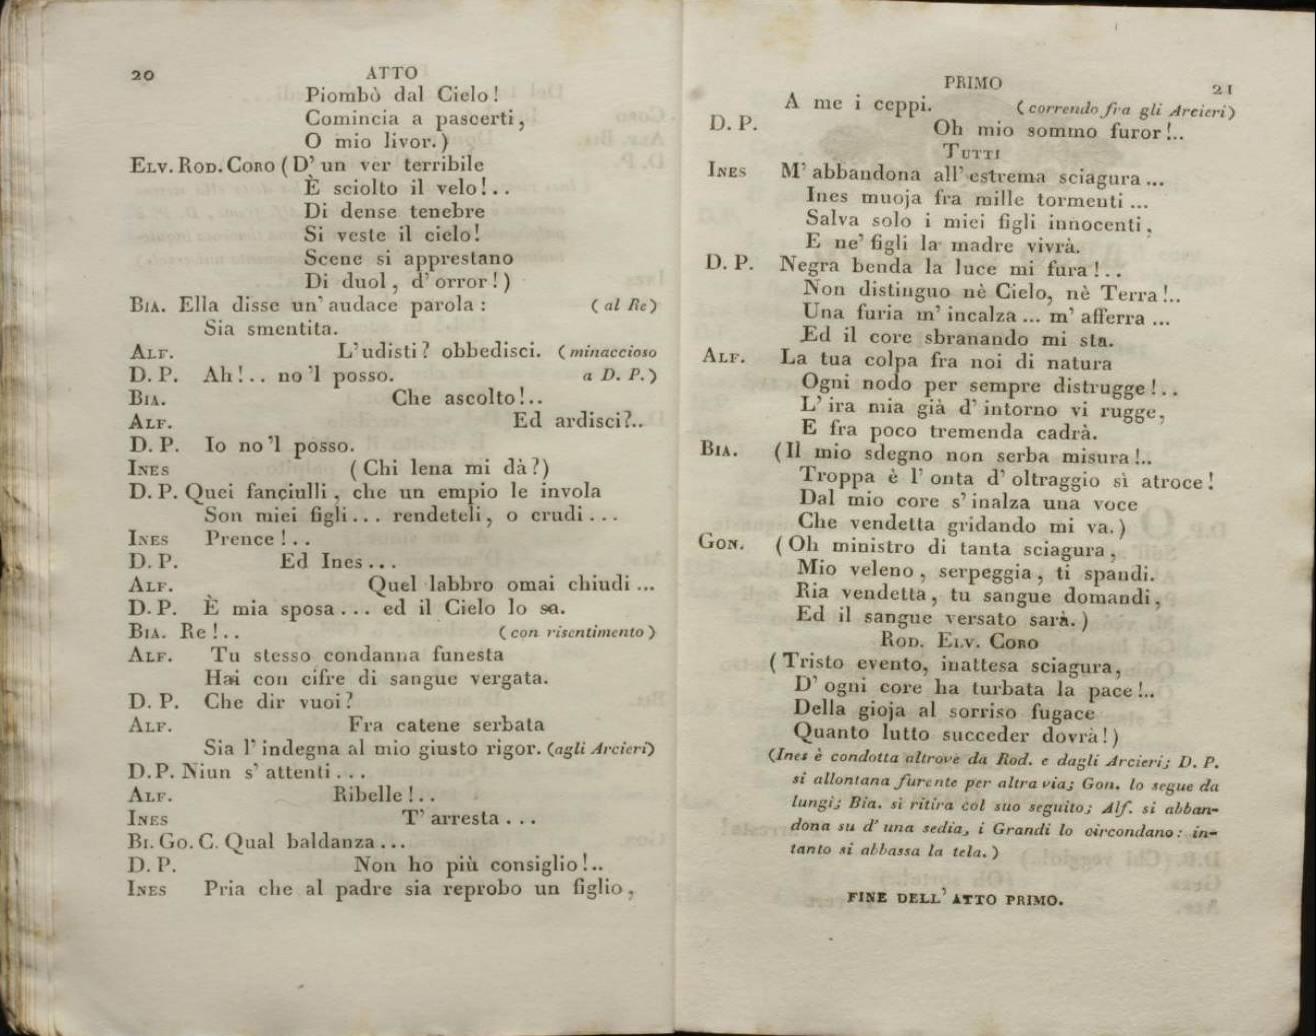 20 ATTO
Piombò dal Cielo!
Comincia a pascerti,
O mio livor.)
ELV. ROD. CORO (D' un ver terribile
È sciolto il velo!..
Di dense tenebre
Si veste il cielo!
Scene si apprestano
Di duol, d' orror!)
BIA. Ella disse un' audace parola: (al Re)
Sia smentita.
ALF. L' udisti? obbedisci. (minaccioso
D. P. Ah!.. no 'l posso. a D. P.)
BIA. Che ascolto!..
ALF. Ed ardisci?..
D. P. Io no 'l posso.
INES (Chi lena mi dà?)
D. P. Quei fanciulli, che un empio le invola
Son miei figli... rendeteli, o crudi...
INES Prence!..
D. P. Ed Ines...
ALF. Quel labbro omai chiudi...
D. P. È mia sposa... ed il Cielo lo sa.
BIA. Re!.. (con risentimento)
ALF. Tu stesso condanna funesta
Hai con cifre di sangue vergata.
D. P. Che dir vuoi?
ALF. Fra catene serbata
Sia l' indegna al mio giusto rigor. (agli Arcieri)
D.P. Niun s' attenti...
ALF. Ribelle!..
INES T' arresta...
BI. GO. C. Qual baldanza...
D. P. Non ho più consiglio!..
INES Pria che al padre sia reprobo un figlio,
PRIMO 21
A me i ceppi. (correndo fra gli Arcieri)
D. P. Oh mio sommo furor!..
TUTTI
INES M' abbandona all' estrema sciagura...
Ines muoja fra mille tormenti...
Salva solo i miei figli innocenti,
E ne' figli la madre vivrà.
D. P. Negra benda la luce mi fura!..
Non distinguo nè Cielo, nè Terra!..
Una furia m' incalza... m' afferra...
Ed il core sbranando mi sta.
ALF. La tua colpa fra noi di natura
Ogni nodo per sempre distrugge!..
L' ira mia già d' intorno vi rugge,
E fra poco tremenda cadrà.
BIA. (Il mio sdegno non serba misura!..
Troppa è l' onta d' oltraggio sì atroce!
Dal mio core s' inalza una voce
Che vendetta gridando mi va.)
GON. (Oh ministro di tanta sciagura,
Mio veleno, serpeggia, ti spandi.
Ria vendetta, tu sangue domandi,
Ed il sangue versato sarà.)
ROD. ELV. CORO
(Tristo evento, inattesa sciagura,
D' ogni core ha turbata la pace!..
Della gioja al sorriso fugace
Quanto lutto succeder dovrà!)
(Ines è condotta altrove da Rod. e dagli Arcieri; D. P.
si allontana furente per altra via; Gon. lo segue da
lungi; Bia. si ritira col suo seguito; Alf. si abban-
dona su d' una sedia, i Grandi lo circondano: in-
tanto si abbassa la tela.)
FINE DELL' ATTO PRIMO.